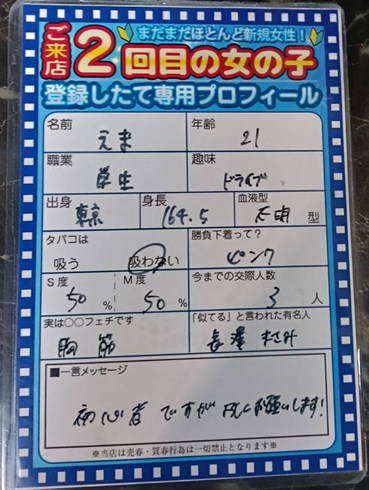 まだまだほとんど新規女性!
ご来店2回目の女の子
登録したて専用プロフィール
名前 えま 年齢 21
職業 学生 趣味 ドライブ
出身 東京 身長 164.5 血液型 不明 型
タバコは 吸う 吸わない 勝負下着って? ピンク
S度 50% M度 50% 今までの交際人数 3人
実は○○フェチです 胸筋 「似てる」と言われた有名人 長澤まさみ
■一言メッセージ
初心者ですが お願いします!
※当店は売春・買春行為は一切禁止となります※